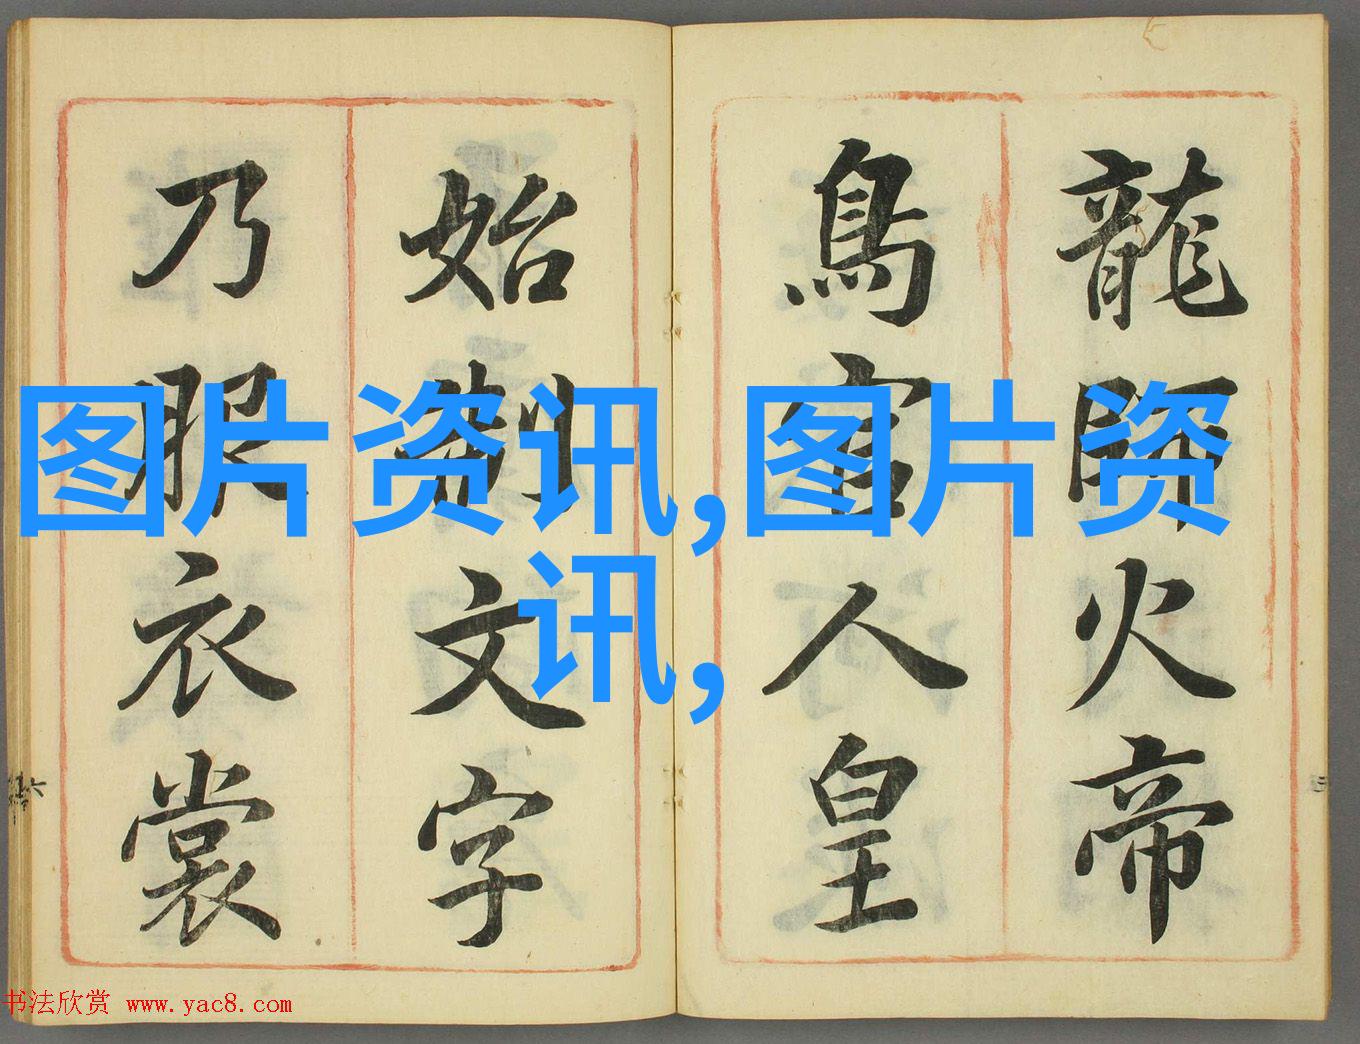 龍師火帝
鳥官人皇
始制文字
乃服衣裳
图片资讯,图片资
讯,
书法欣赏 www.yac8.com